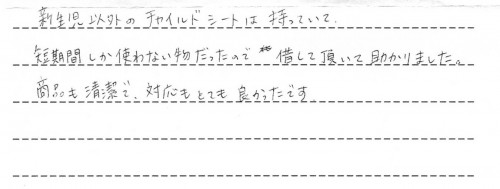 新生児以外のチャイルドシートは持っていて、
短期間しか使わない物だったので 借して頂いて助かりました。
商品も清潔で、対応もとても良かったです。